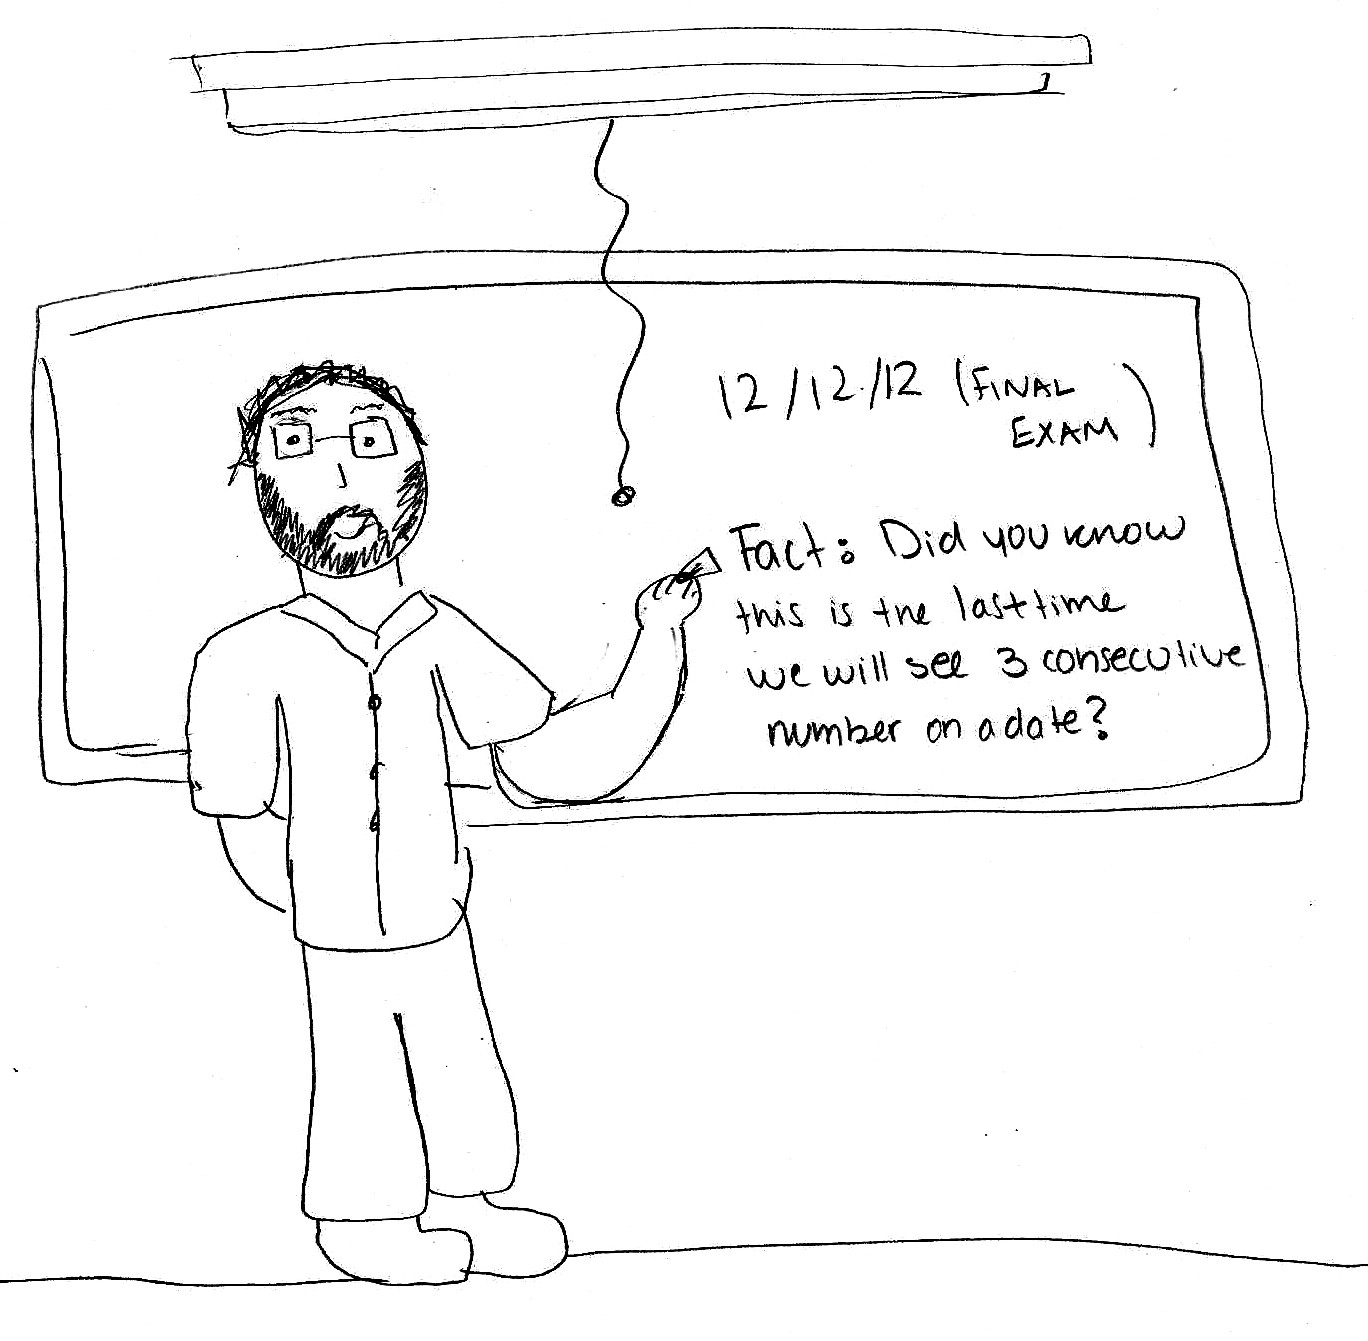 12/12/12 (FINAL
EXAM)
Fact: Did you know
this is the last time
we will see 3 consecutive
number on a date?